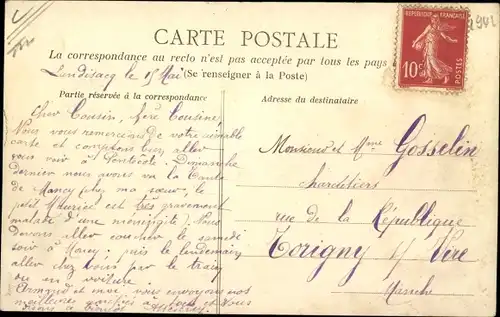 CARTE POSTALE
La correspondance au recto n'est pas acceptée par tous les pays
(Se renseigner à la Poste)
Landisacq le 15 Mai
Partie réservée à la correspondance
Cher Cousin, chère Cousine
Nous vous remercions de votre aimable
carte et comptons bien aller
vous voir à Pentecôte. Dimanche
dernier nous avons vu la Tante
de Nancy chez ma sœur, le
petit Maurice est très gravement
malade d'une méningite) Nous
devons aller coucher le samedi
soir à puis le lendemain
aller chez vous par le train
ou en voiture.
Armand et moi vous envoyons nos
meilleures à tous et vous
disons à
Adresse du destinataire
Monsieur et Mme Gosselin
rue de la République
Torigny s/ Vire
Manche
RÉPUBLIQUE FRANÇAISE
10c
POSTES